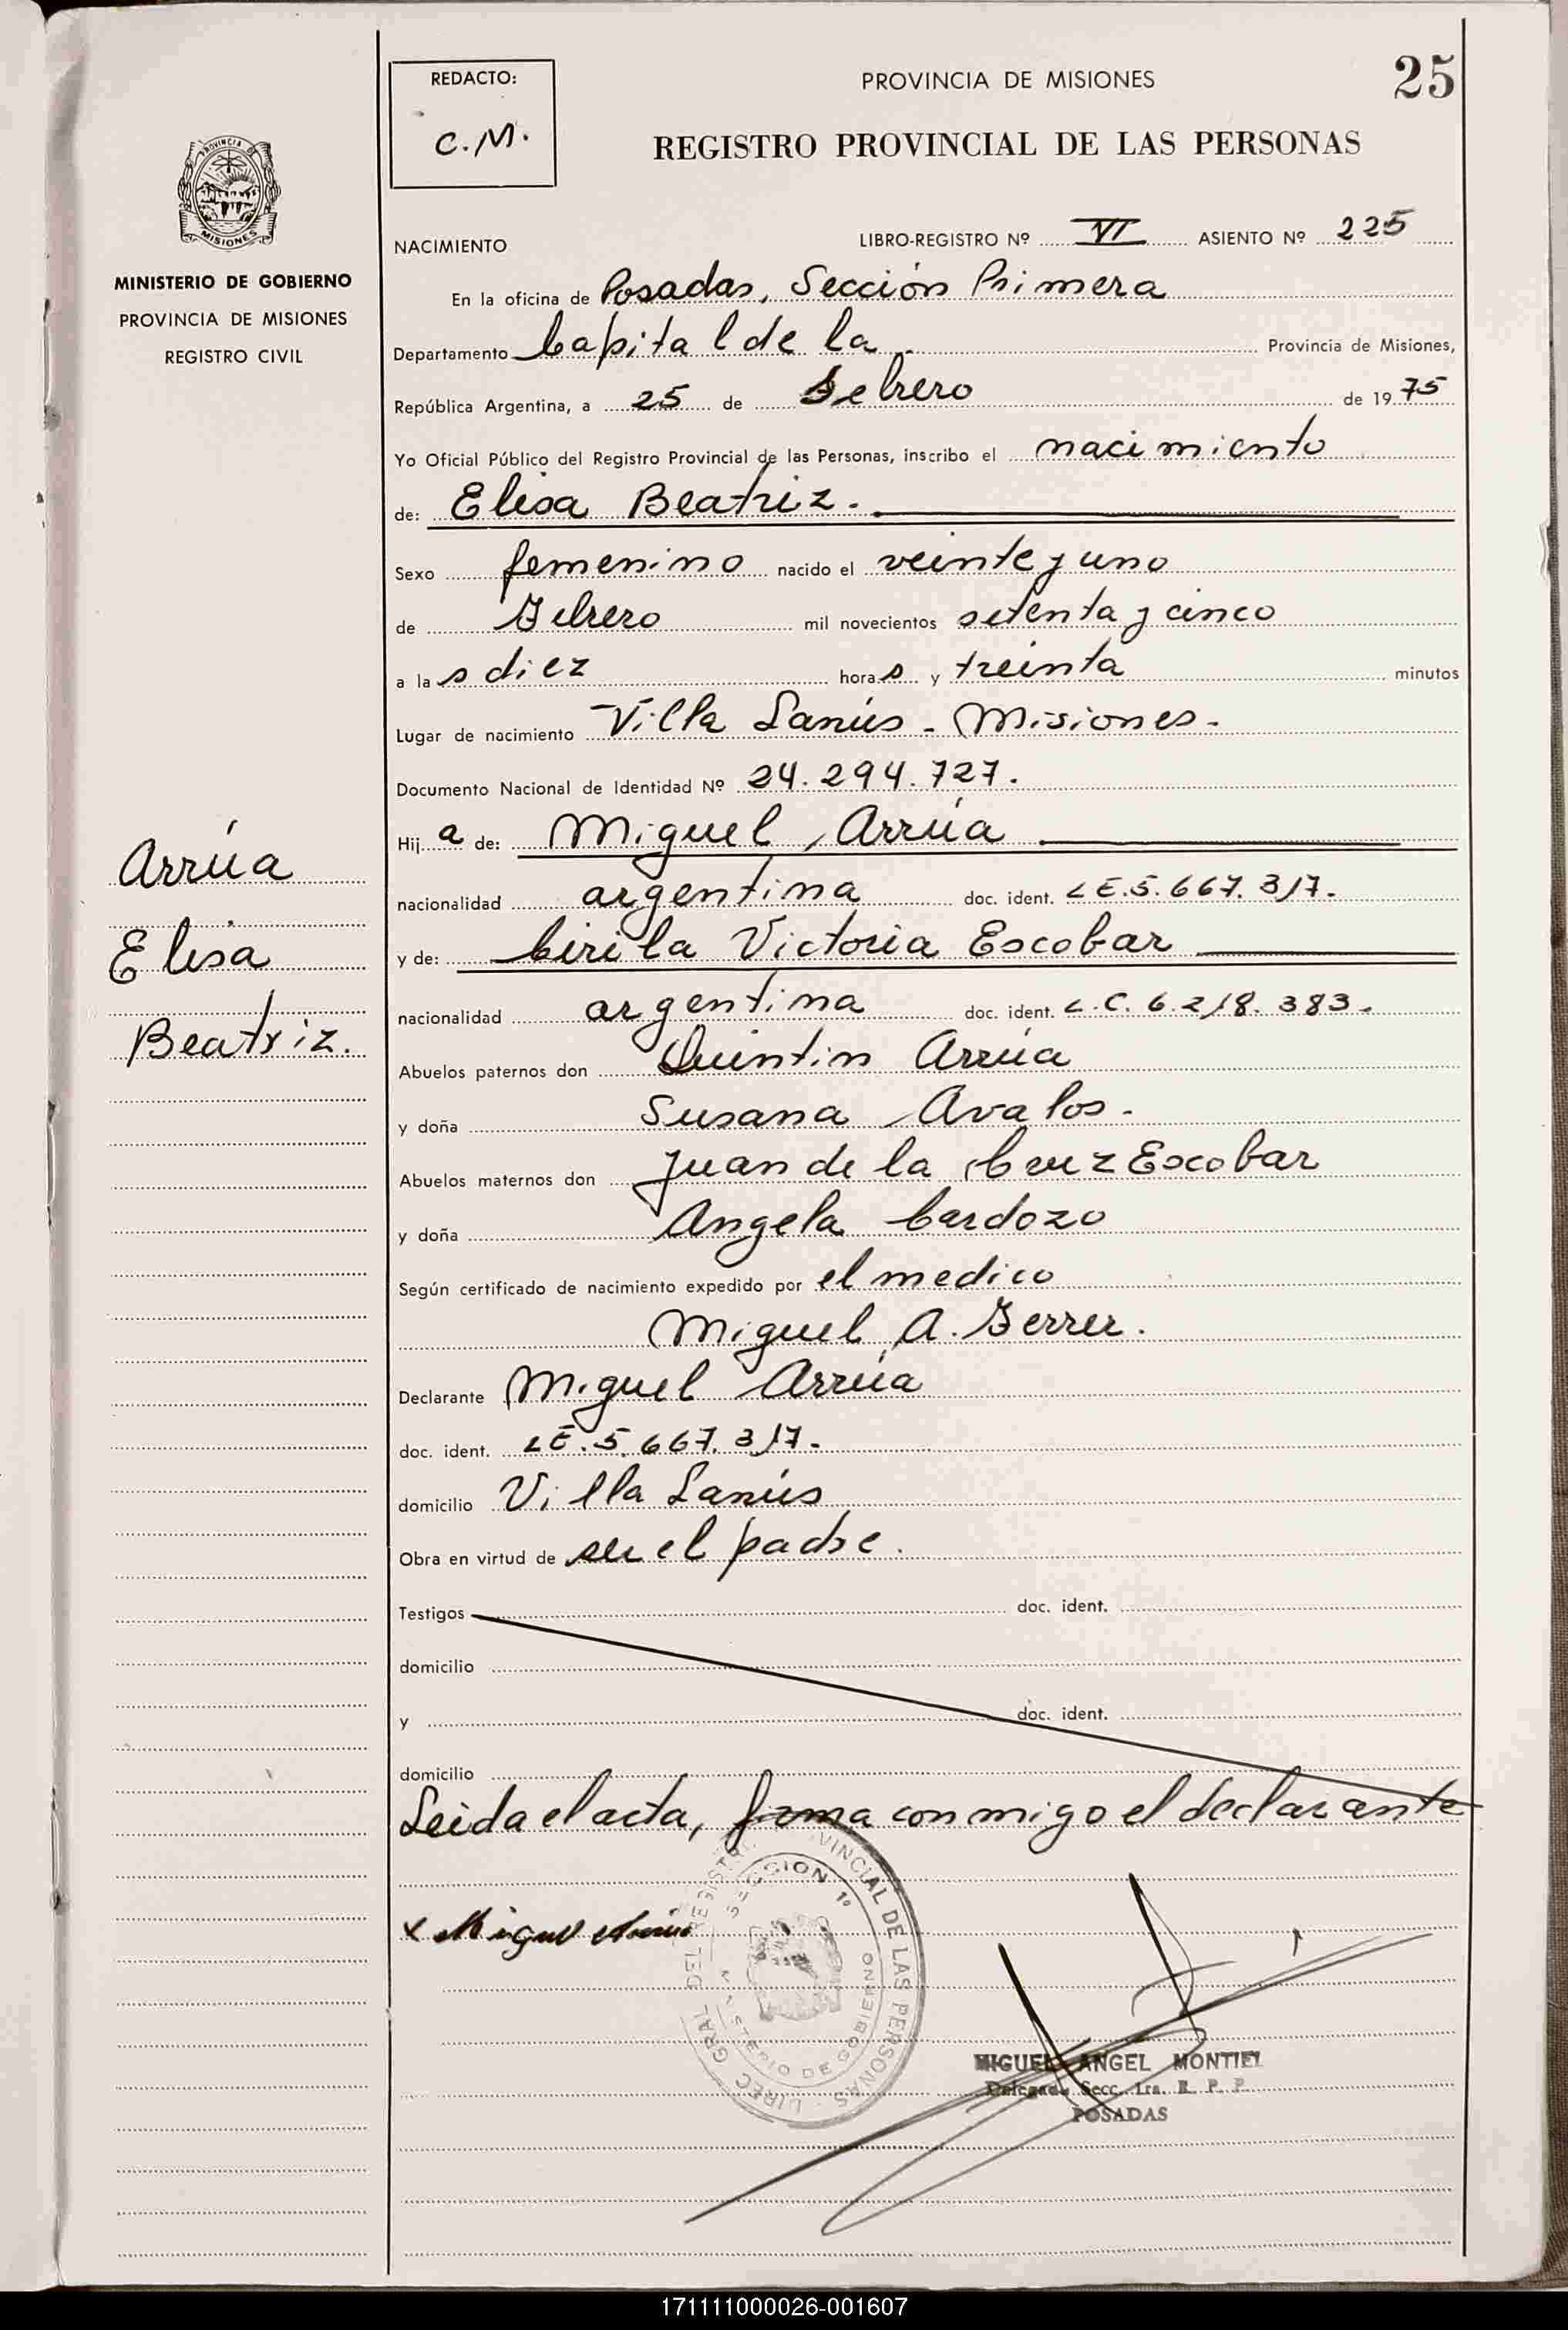 REDACTO:
C.M.
PROVINCIA DE MISIONES
25
REGISTRO PROVINCIAL DE LAS PERSONAS
PROVINCIA DE
MISIONES
MINISTERIO DE GOBIERNO
PROVINCIA DE MISIONES
REGISTRO CIVIL
NACIMIENTO
LIBRO-REGISTRO Nº VI ASIENTO Nº 225
En la oficina de Posadas, Sección Primera
Departamento Capital de la Provincia de Misiones,
República Argentina, a 25 de Febrero de 1975
Yo Oficial Público del Registro Provincial de las Personas, inscribo el nacimiento
de: Elisa Beatriz.
Sexo femenino nacido el veinte y uno
de Febrero mil novecientos setenta y cinco
a las diez horas y treinta minutos
Lugar de nacimiento Villa Lanús - Misiones -
Documento Nacional de Identidad Nº 24.294.727.
Hija de: Miguel Arrúa
nacionalidad argentina doc. ident. L E. 5. 667. 317.
y de: Cirila Victoria Escobar
nacionalidad argentina doc. ident. L. C. 6. 218. 383.
Abuelos paternos don Quintin Arrúa
y doña Susana Avalos.
Abuelos maternos don Juan de la Cruz Escobar
y doña Angela Cardozo
Según certificado de nacimiento expedido por el medico
Miguel A. Ferrer.
Declarante Miguel Arrúa
doc. ident. LE. 5. 667. 317.
domicilio Villa Lanús
Obra en virtud de ser el padre.
Testigos doc. ident.
domicilio
y doc. ident.
domicilio
Leida el acta, firma conmigo el declarante
Arrúa
Elisa
Beatriz.
x Miguel Arrúa
DIREC GRAL DEL REGISTRO PROVINCIAL DE LAS PERSONAS
SECCION 1º
MINISTERIO DE GOBIERNO
MIGUEL ANGEL MONTIEL
Delegado Secc. 1ra. R. P. P.
POSADAS
171111000026-001607